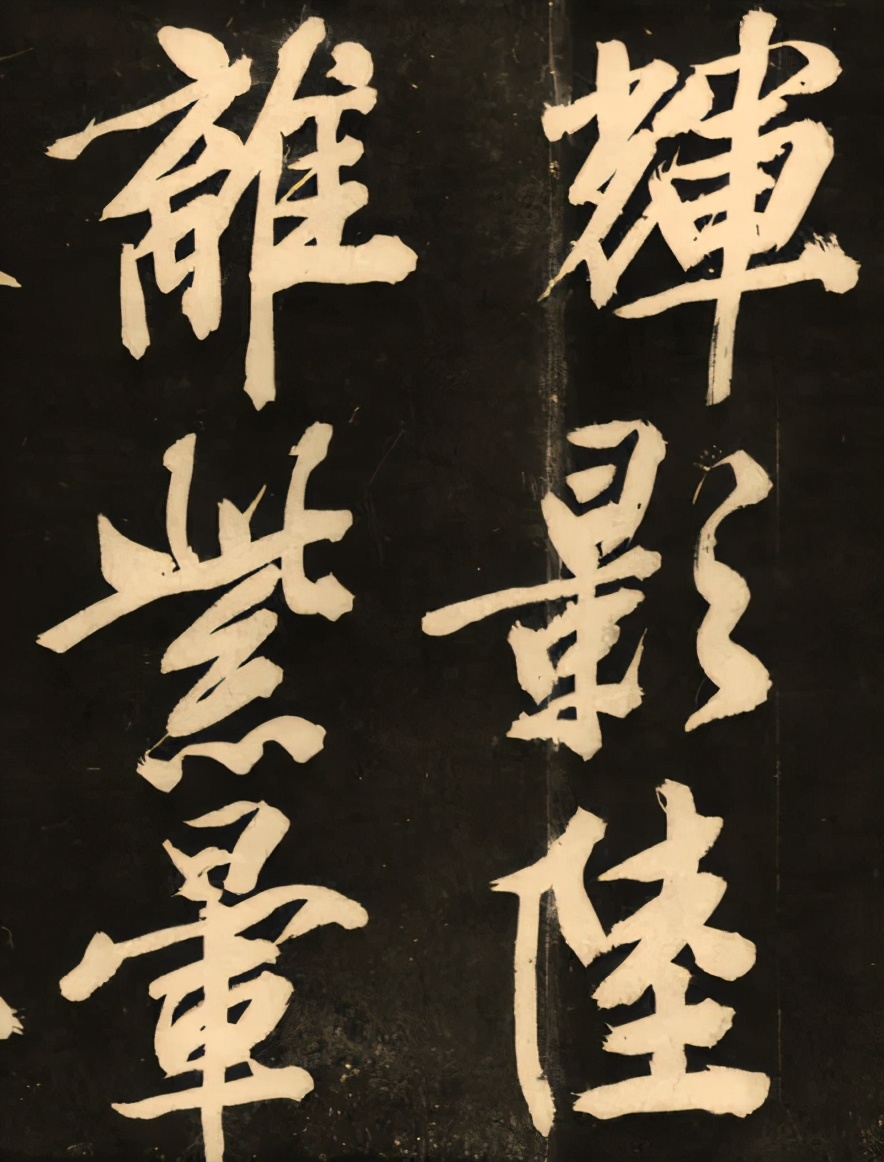 輝影陸
離紫暈